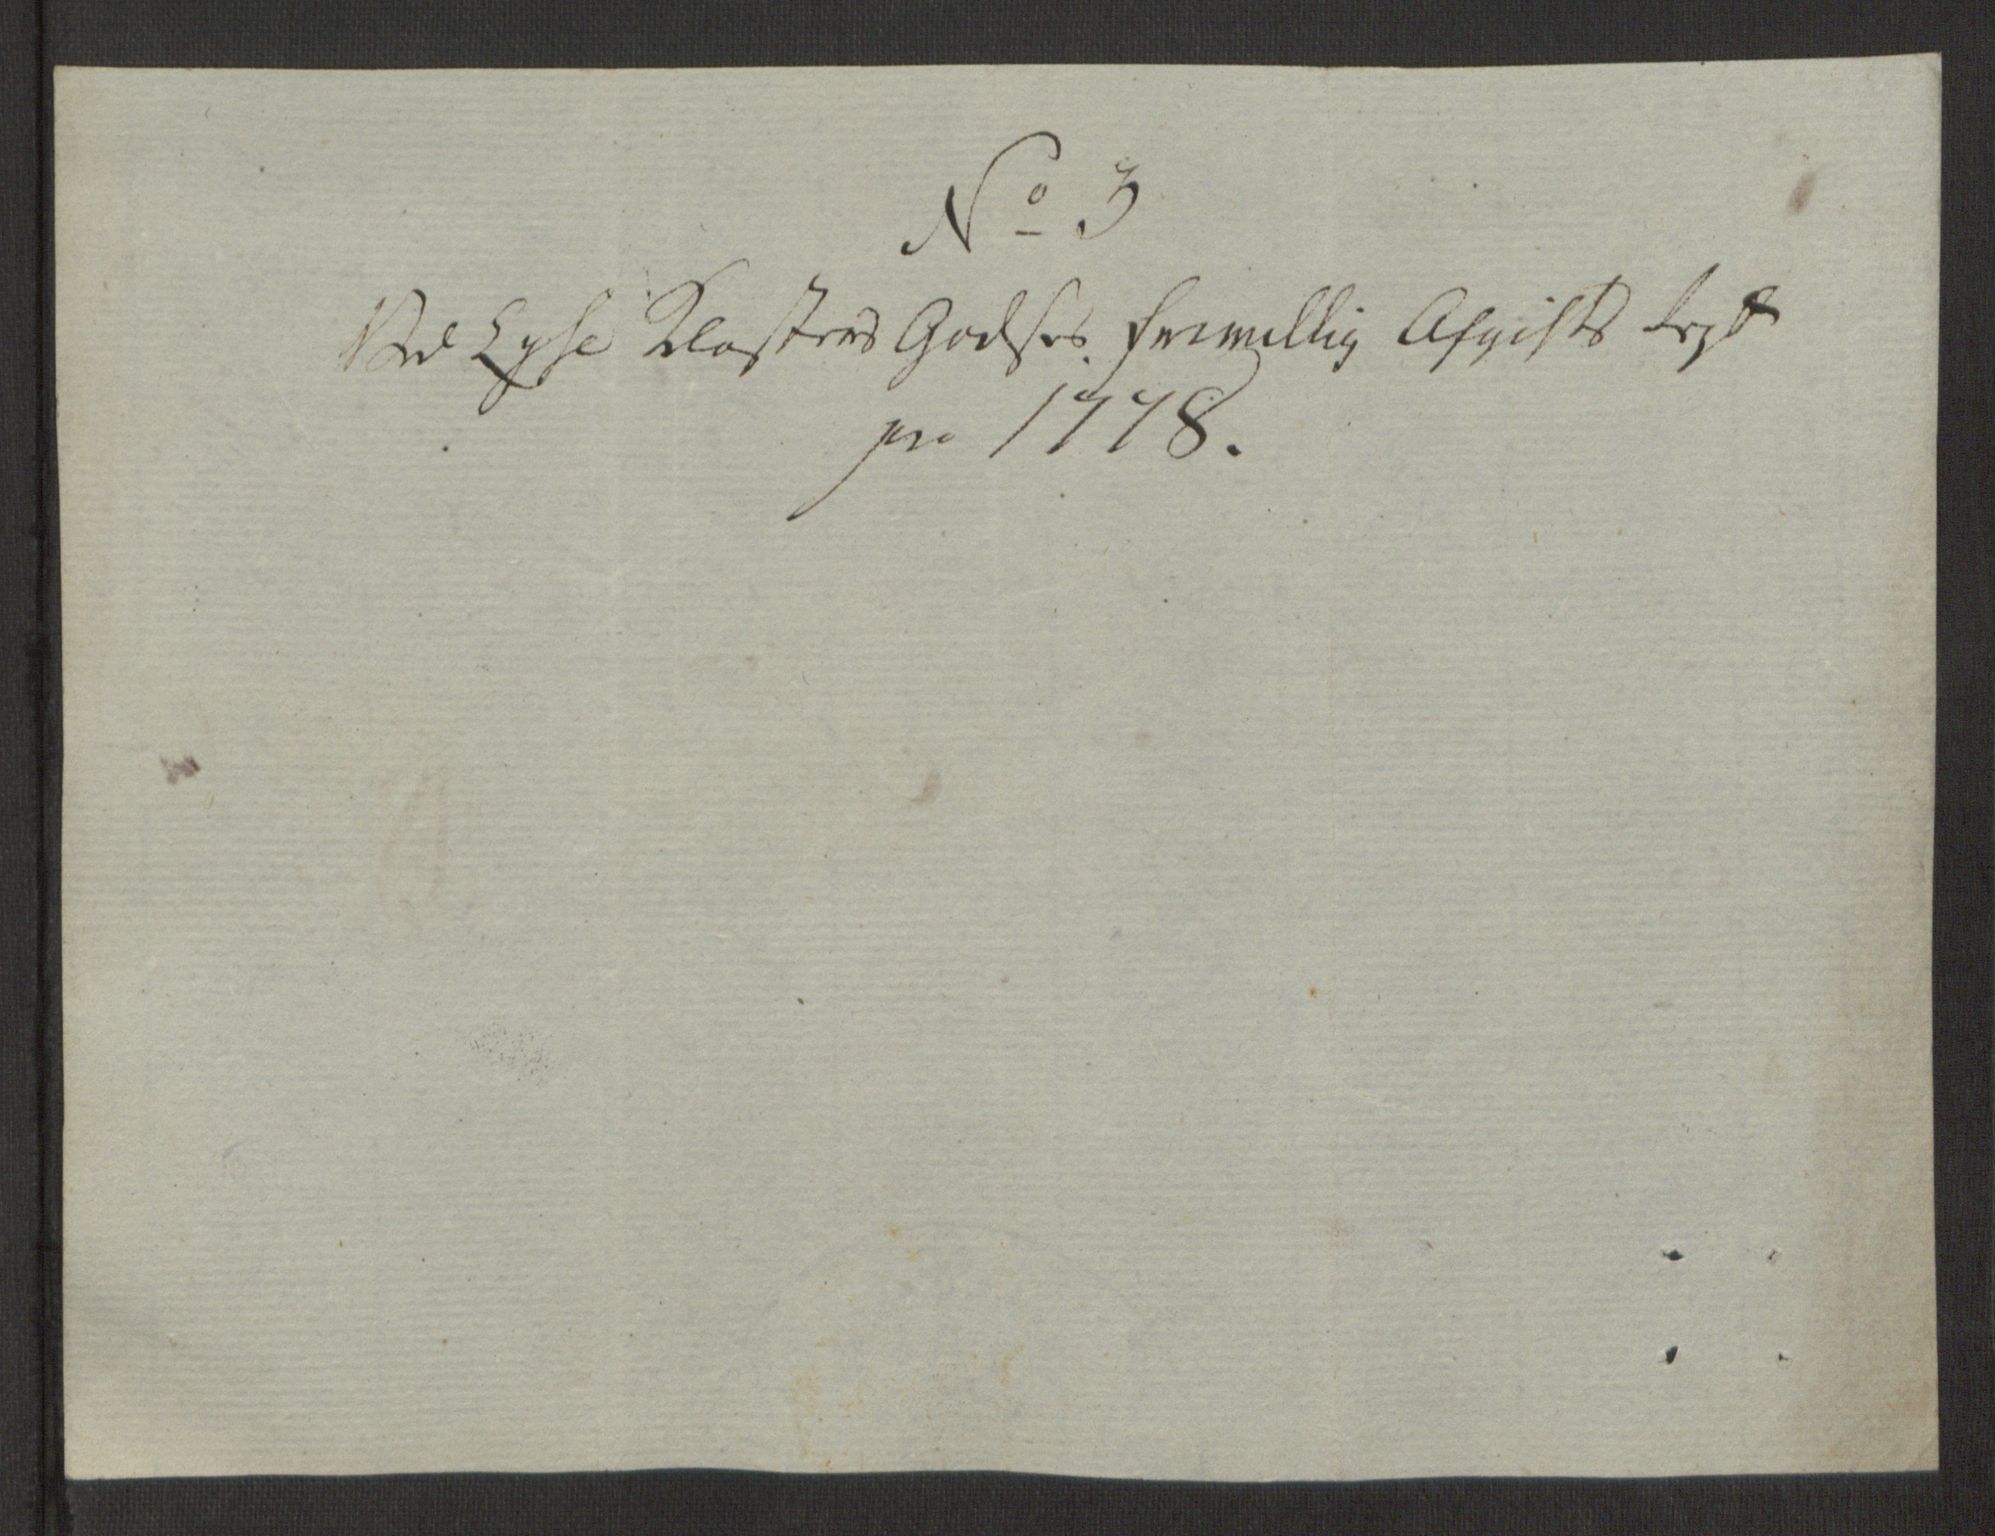 No 3
Ved Lyse Klosters Godses frivillig Afgifts
pro 1778.